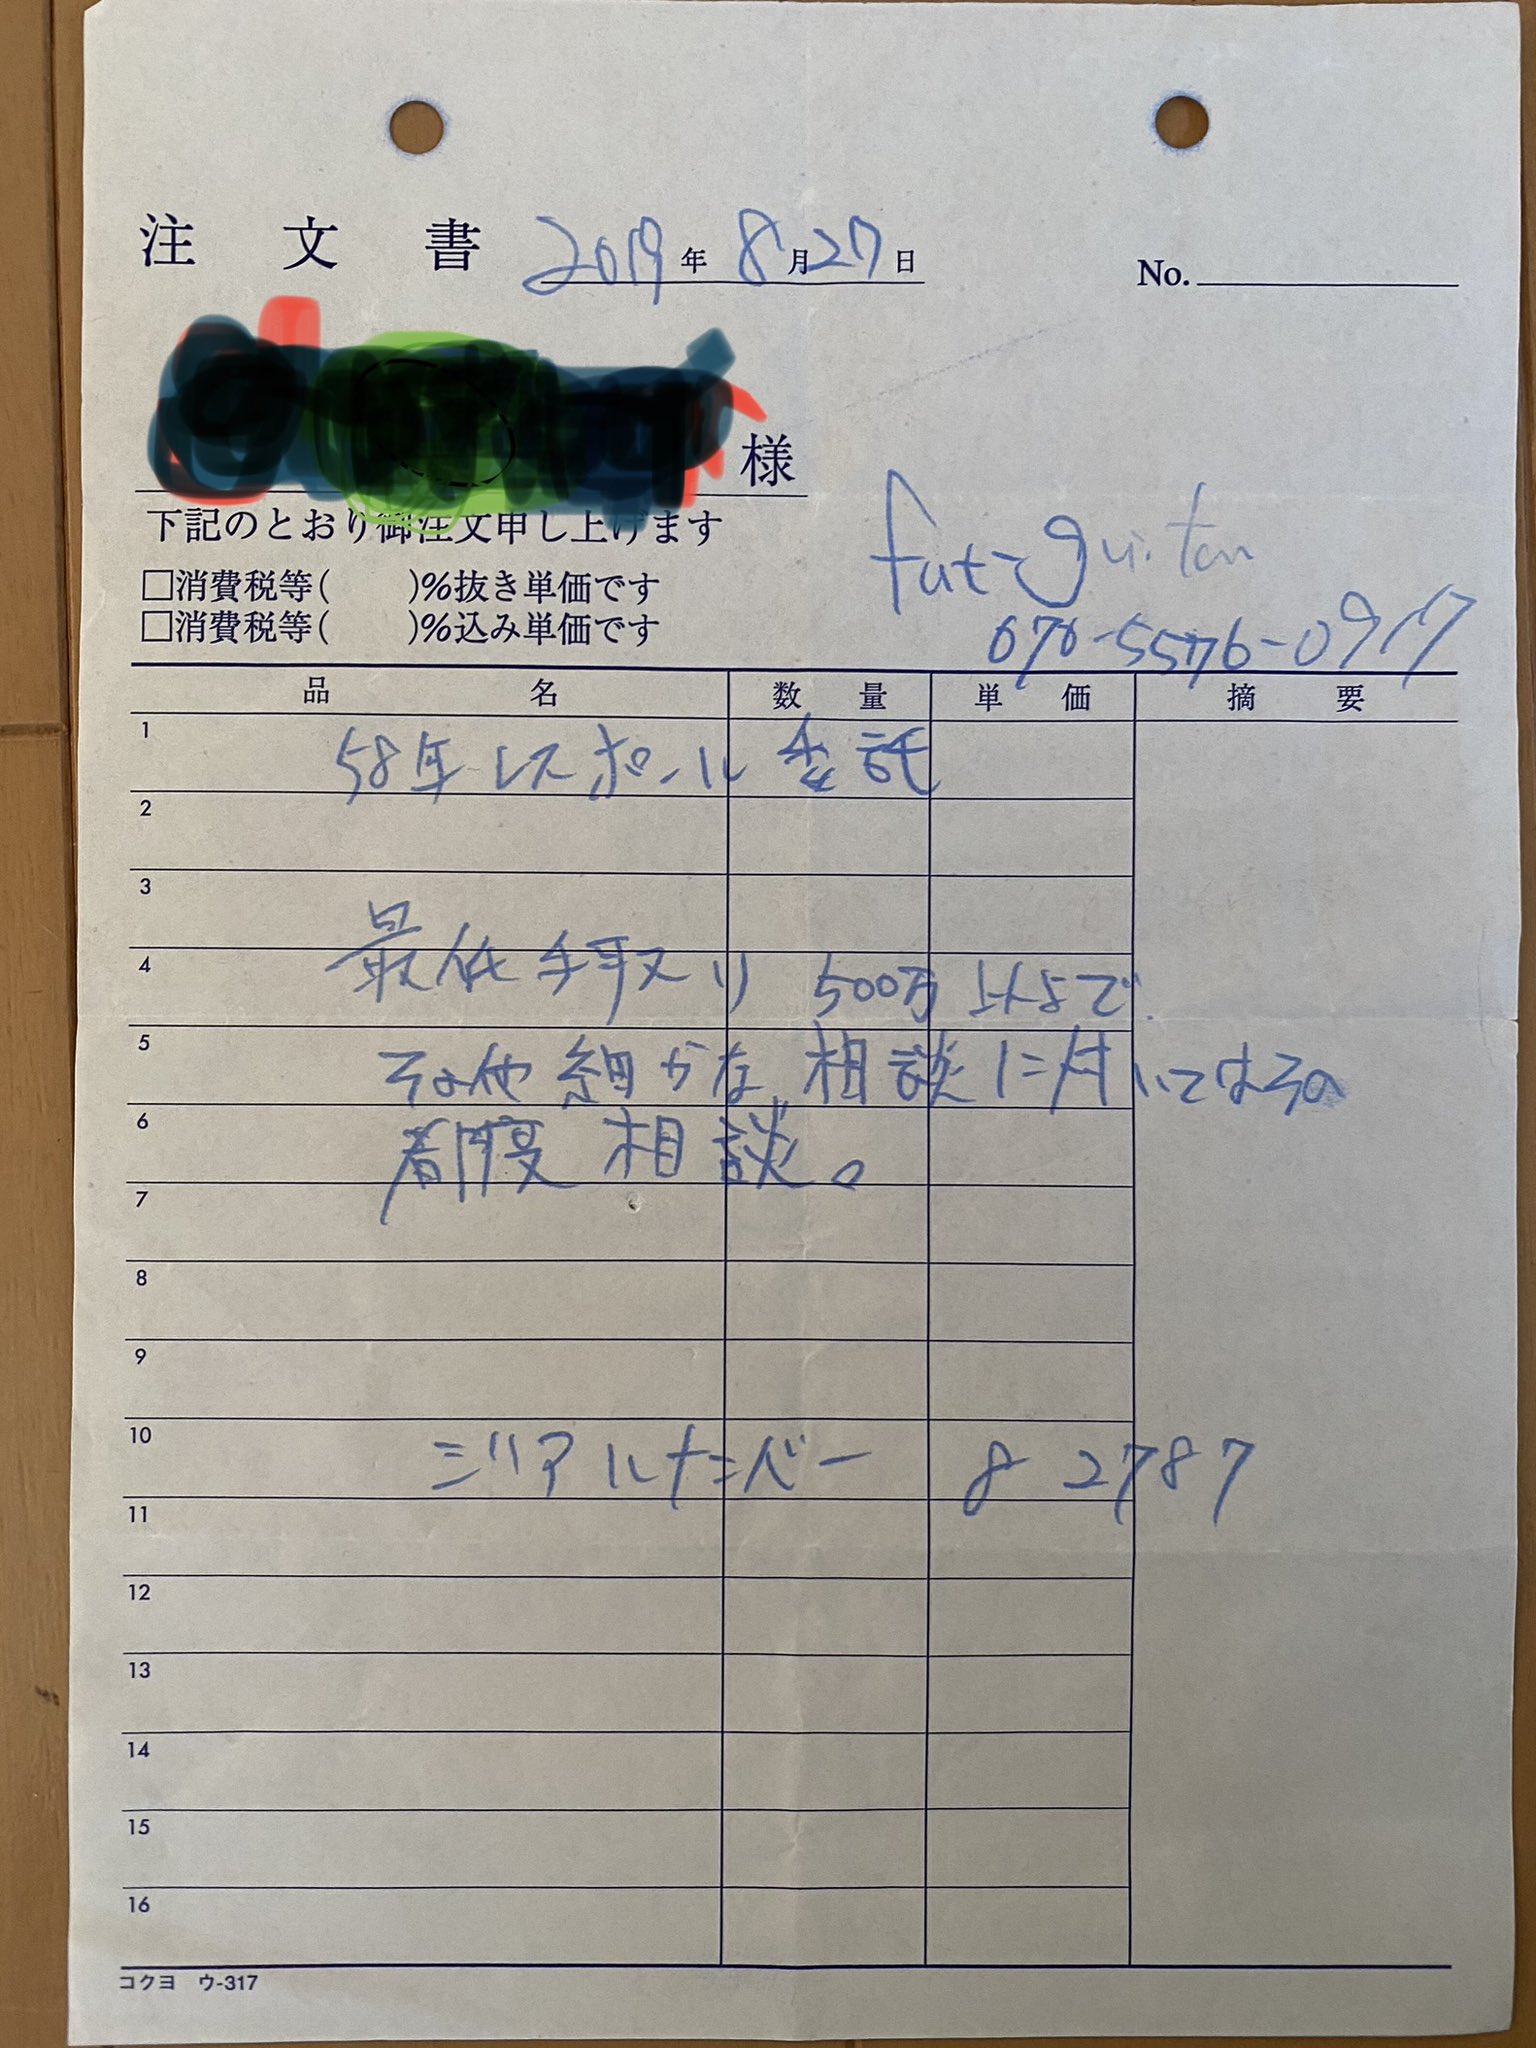 注文書 2019年8月27日 No.
様
下記のとおり御注文申し上げます
□消費税等( )%抜き単価です
□消費税等( )%込み単価です
070-5576-0917
品名 数量 単価 摘要
1 58年レスポール委託
2
3
4 最低手取り 500万以上で
5 その他細かな相談に付いてはその
6 都度相談。
7
8
9
10 シリアルナンバー 8 2787
11
12
13
14
15
16
コクヨ ウ-317